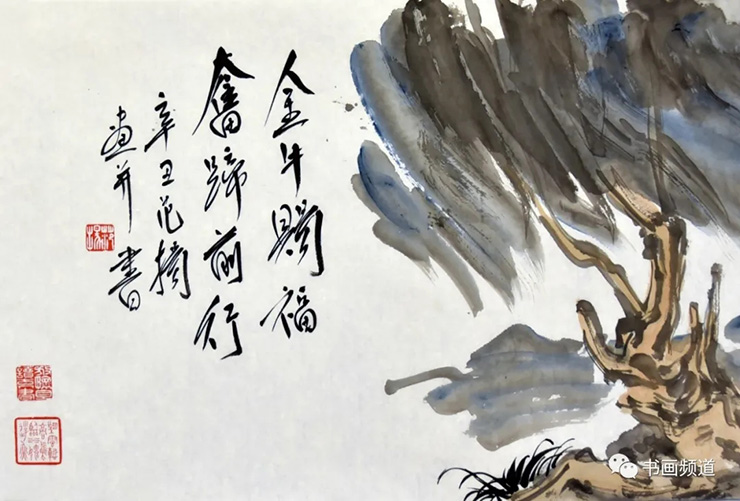 金牛賜福
奮蹄前行
辛丑范揚
畫并書
书画频道